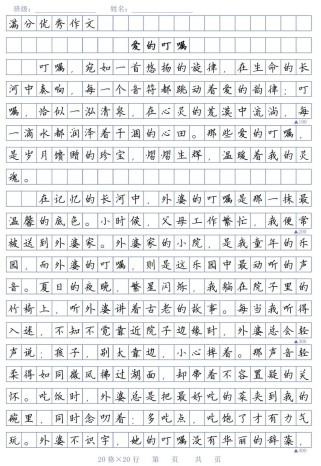 班级：
姓名：
满分优秀作文
爱的叮嘱
叮嘱，宛如一首悠扬的旋律，在生命的长
河中奏响，每一个音符都跳动着爱的韵律；叮
嘱，恰似一泓清泉，在心灵的荒漠中流淌，每
▲100
一滴水都润泽着干涸的心田。那些爱的叮嘱，
是岁月馈赠的珍宝，熠熠生辉，温暖着我的灵
魂。
在记忆的长河中，外婆的叮嘱是那一抹最
温馨的底色。小时候，父母工作繁忙，我便常
▲200
被送到外婆家。外婆家的小院，是我童年的乐
园，而外婆的叮嘱，则是这乐园中最动听的声
音。夏日的夜晚，繁星闪烁，我躺在院子里的
竹椅上，听外婆讲着古老的故事。每当我听得
入迷，不知不觉靠近院子边缘时，外婆总会轻
▲300
声说：孩子，别太靠边，小心摔着。那声音轻
柔得如同微风拂过湖面，却带着不容置疑的关
怀。吃饭时，外婆总是把最好吃的菜夹到我的
碗里，同时念叨着：多吃点，吃饱了才有力气
玩。外婆不识字，她的叮嘱没有华丽的辞藻，
▲400
20格×20行 第 页 共 页